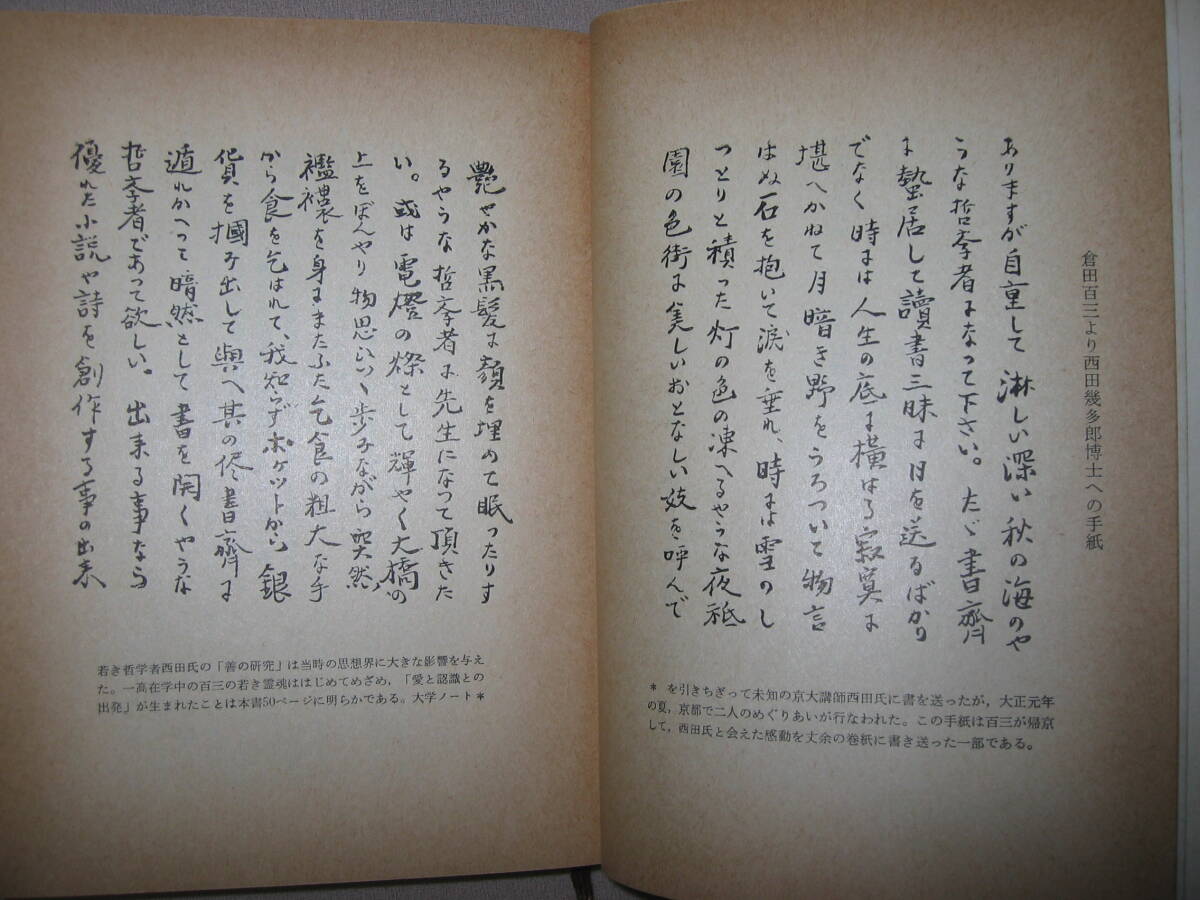 倉田百三より西田幾多郎博士への手紙
ありますが自重して淋しい深い秋の海のや
うな哲学者になって下さい。たゞ書齋
に蟄居して讀書三昧に日を送るばかり
でなく時には人生の底に横はる寂寞に
堪へかねて月暗き野をうろついて物言
はぬ石を抱いて涙を垂れ、時には雪のし
つとりと積った灯の色の凍へるやうな夜祗
園の色街に美しいおとなしい妓を呼んで
艶やかな黒髪に顔を埋めて眠ったりす
るやうな哲学者に先生になって頂きた
い。或は電燈の燦として輝やく大橋の
上をぼんやり物思ひつく歩みながら突然、
襤褸を身にまたふた乞食の粗大な手
から食を乞はれて、我知らずポケットから銀
貨を摑み出して與へ其の侭書齋に
遁れかへって暗然として書を開くやうな
哲学者であって欲しい。出来る事なら
優れた小説や詩を創作する事の出来
若き哲学者西田氏の「善の研究」は当時の思想界に大きな影響を与え
た。一高在学中の百三の若き霊魂ははじめてめざめ,「愛と認識との
出発」が生まれたことは本書50ページに明らかである。大学ノート＊
＊を引きちぎって未知の京大講師西田氏に書を送ったが,大正元年
の夏,京都で二人のめぐりあいが行なわれた。この手紙は百三が帰京
して,西田氏と会えた感動を丈余の巻紙に書き送った一部である。